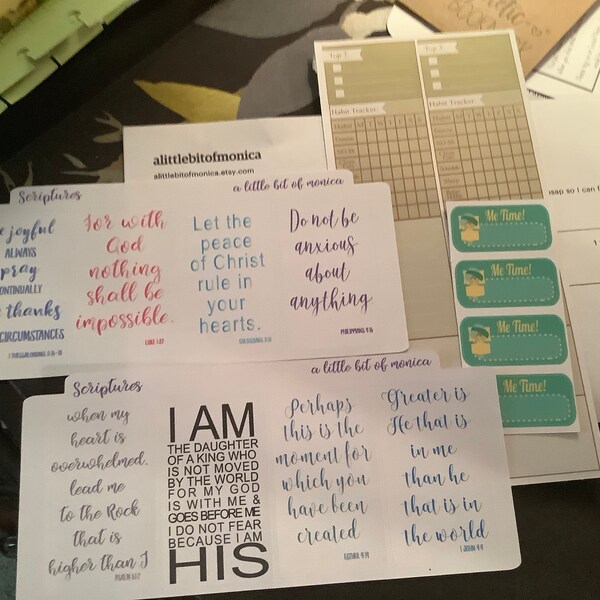 alittlebitofmonica
alittlebitofmonica.etsy.com
Top 3
Top 3
Habit Tracker
Habit Tracker
Scriptures
a little bit of monica
joyful
ALWAYS
pray
CONTINUALLY
thanks
CIRCUMSTANCES
For with
God
nothing
shall be
impossible.
LUKE 1:37
Let the
peace
of Christ
rule in
your
hearts.
COLOSSIANS 3:15
Do not be
anxious
about
anything
PHILIPPIANS 4:6
Me Time!
Me Time!
Me Time!
Me Time!
Scriptures
a little bit of monica
when my
heart is
overwhelmed,
lead me
to the Rock
that is
higher than I
PSALM 61:2
I AM
THE DAUGHTER
OF A KING WHO
IS NOT MOVED
BY THE WORLD
FOR MY GOD
IS WITH ME &
GOES BEFORE ME
I DO NOT FEAR
BECAUSE I AM
HIS
Perhaps
this is the
moment for
which you
have been
created
ESTHER 4:14
Greater is
He that is
in me
than he
that is in
the world
1 JOHN 4:4
so I can f